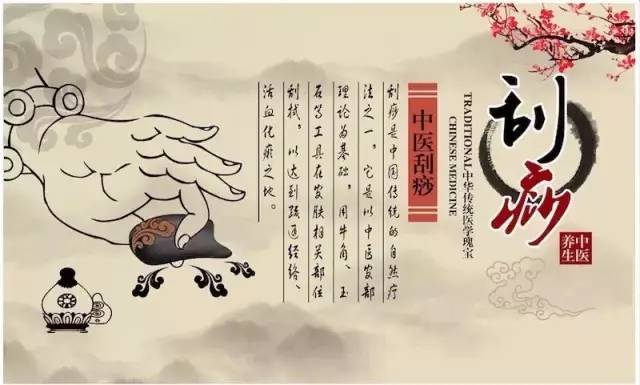 刮痧
中医
养生
TRADITIONAL中华传统医学瑰宝
CHINESE MEDICINE
中医刮痧
刮痧是中国传统的自然疗
法之一，它是以中医皮部
理论为基础，用牛角、玉
石等工具在皮肤相关部位
刮拭，以达到疏通经络、
活血化瘀之地。